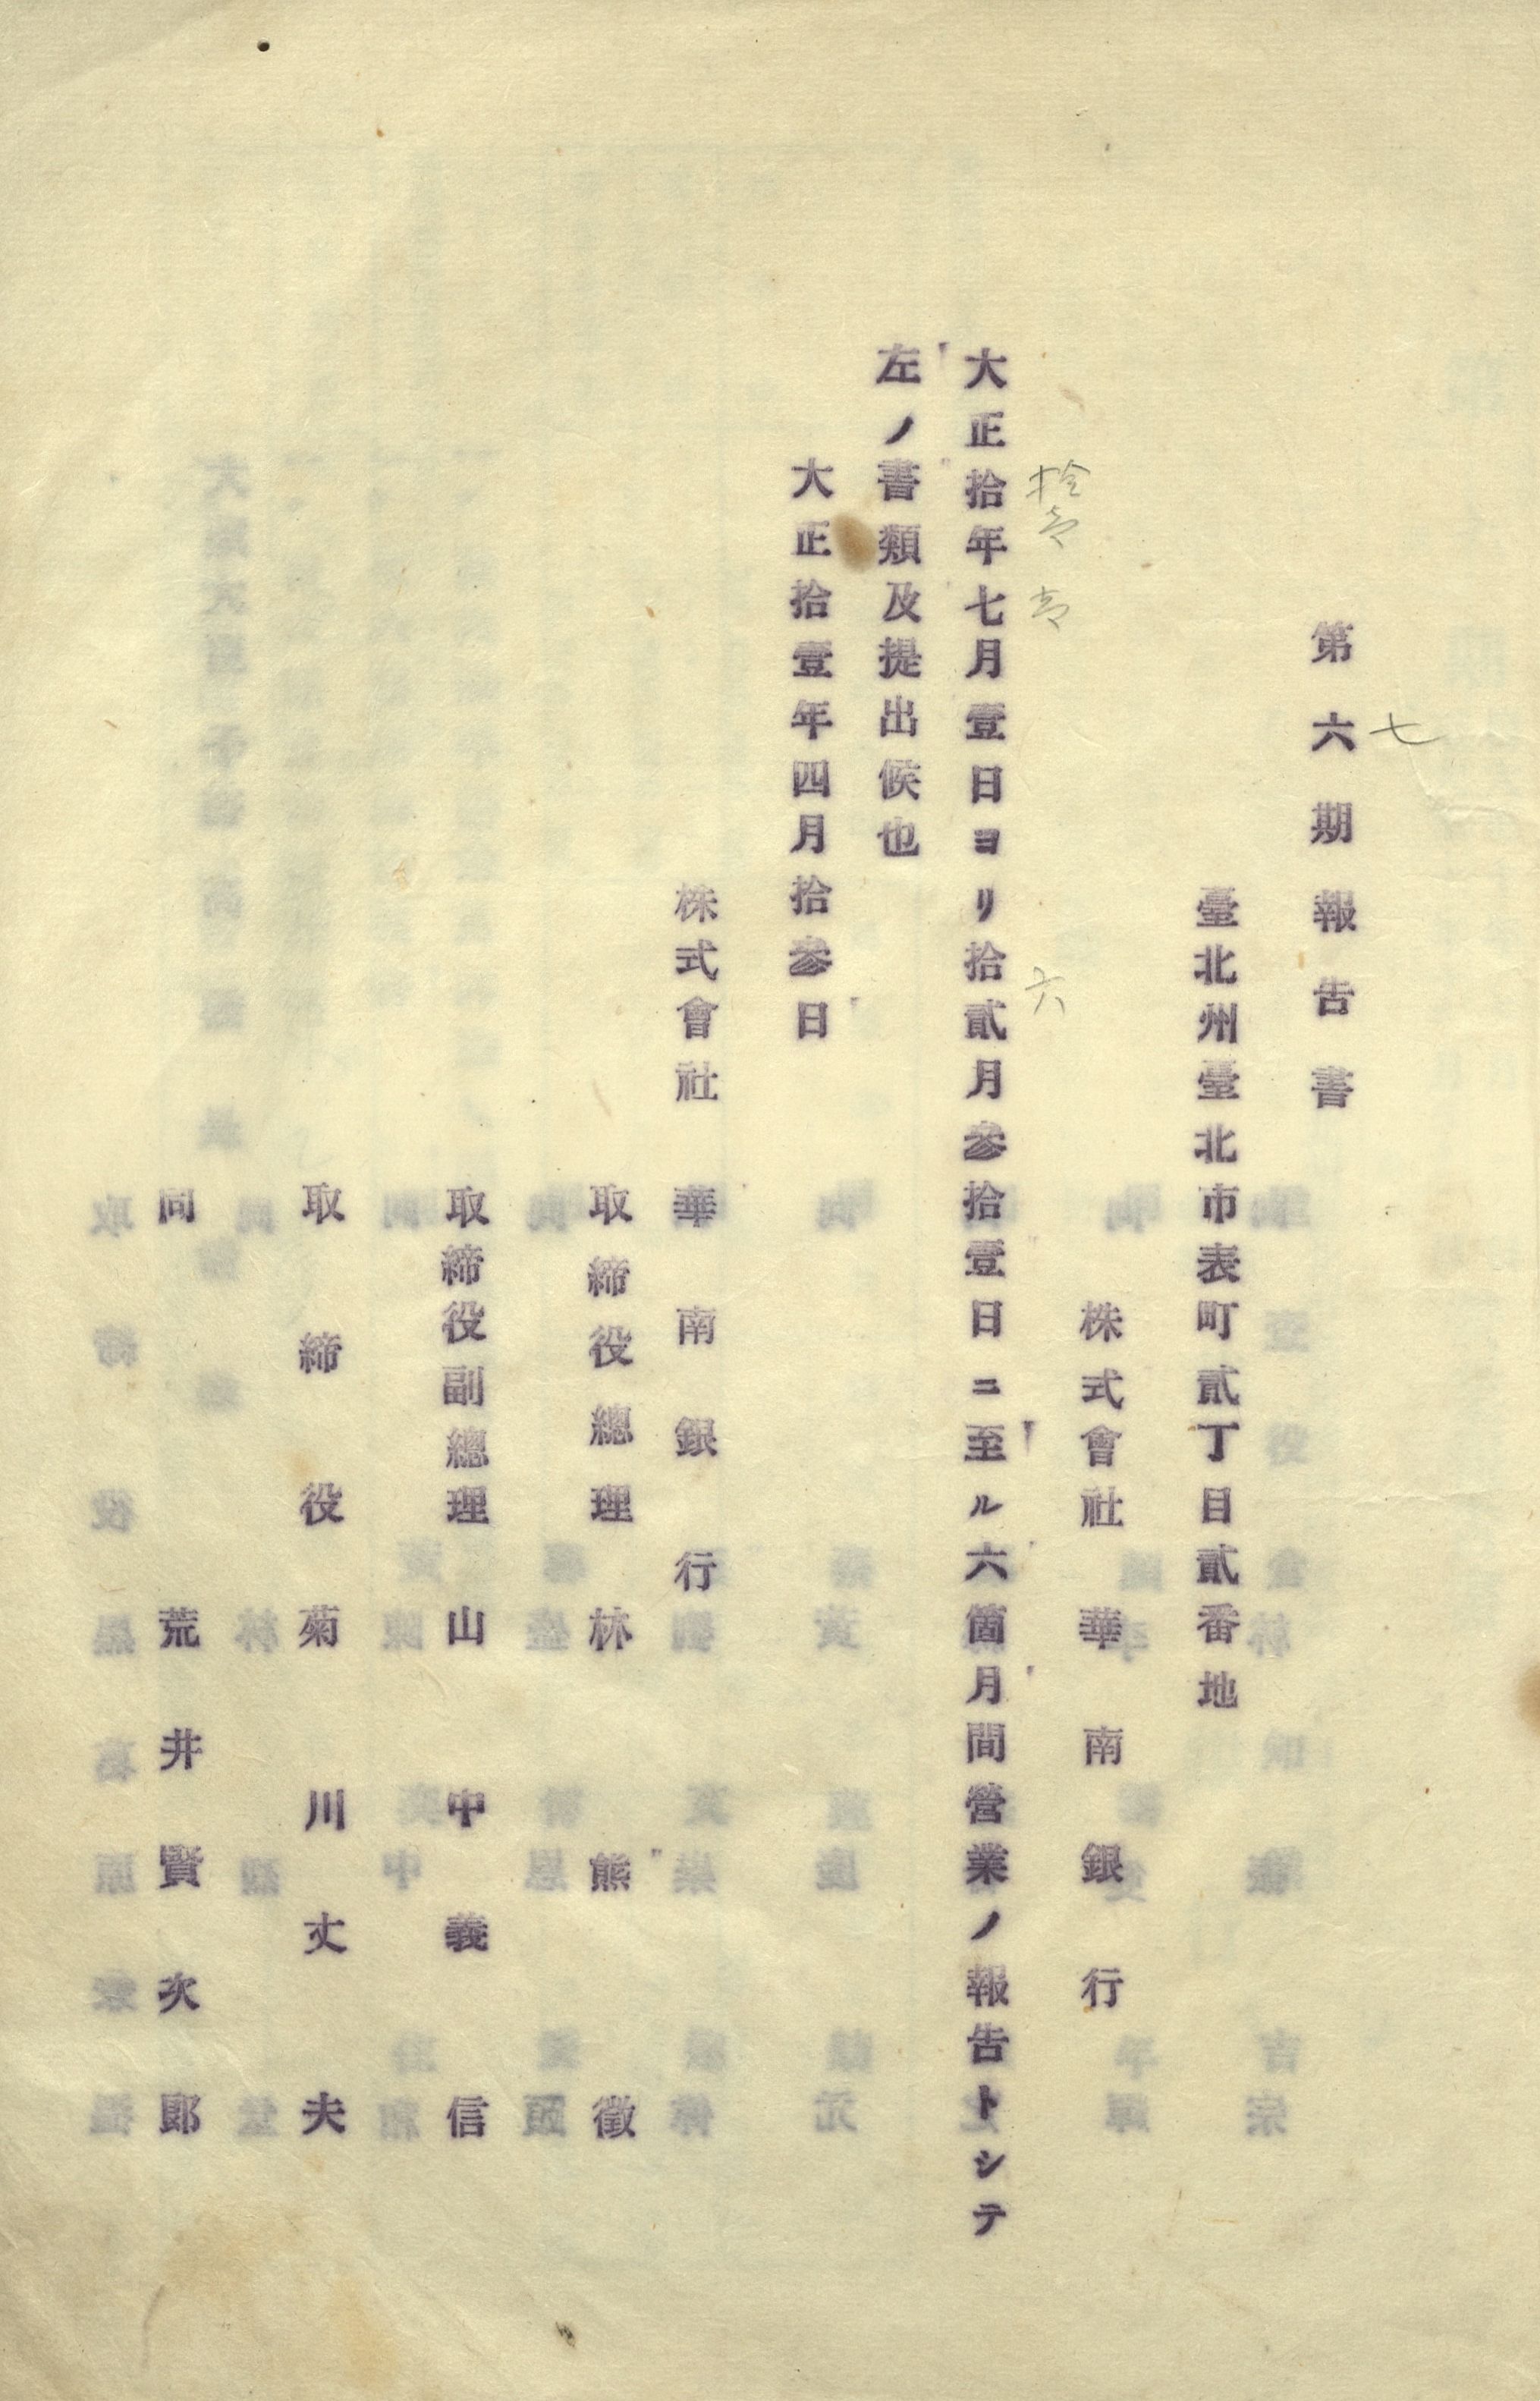 第六期報告書
七
臺北州臺北市表町貳丁目貳番地
株式會社華南銀行
拾壱
壱
六
大正拾年七月壹日ヨリ拾貳月參拾壹日ニ至ル六箇月間營業ノ報告トシテ
左ノ書類及提出候也
大正拾壹年四月拾參日
株式會社華南銀行
取締役總理 林熊徵
取締役副總理 山中義信
取締役 菊川丈夫
同 荒井賢次郎